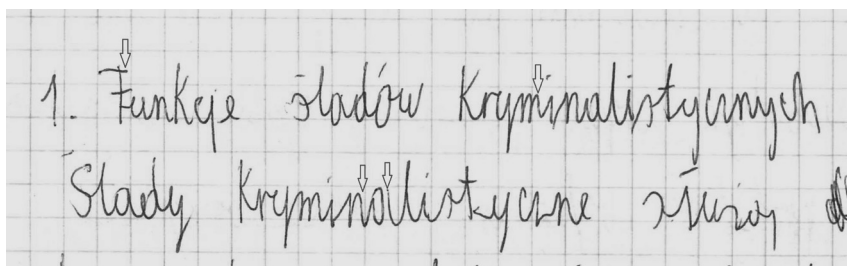 1. Funkcje śladów Kryminalistycznych
Ślady Kryminalistyczne służą